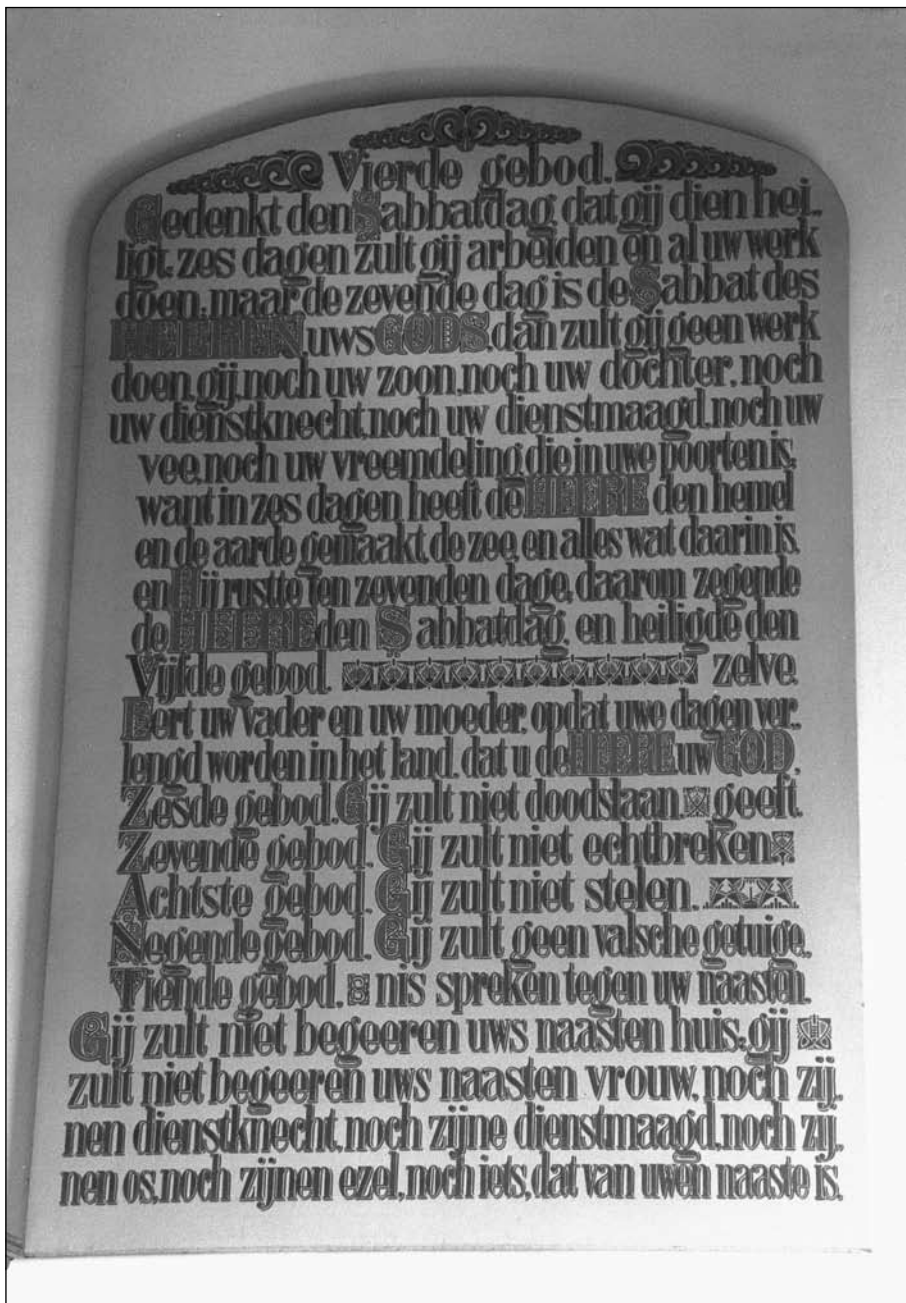 Vierde gebod.
Gedenkt den Sabbatdag, dat gij dien hei-
ligt, zes dagen zult gij arbeiden en al uw werk
doen; maar de zevende dag is de Sabbat des
HEEREN uws GODS, dan zult gij geen werk
doen, gij, noch uw zoon, noch uw dochter, noch
uw dienstknecht, noch uw dienstmaagd, noch uw
vee, noch uw vreemdeling, die in uwe poorten is;
want in zes dagen heeft de HEERE den hemel
en de aarde gemaakt, de zee, en alles wat daarin is,
en Hij rustte ten zevenden dage, daarom zegende
de HEERE den Sabbatdag, en heiligde den
Vijfde gebod. zelve.
Eert uw vader en uw moeder, opdat uwe dagen ver-
lengd worden in het land, dat u de HEERE uw GOD,
Zesde gebod. Gij zult niet doodslaan. geeft.
Zevende gebod. Gij zult niet echtbreken.
Achtste gebod. Gij zult niet stelen.
Negende gebod. Gij zult geen valsche getuige-
Tiende gebod. nis spreken tegen uw naasten.
Gij zult niet begeeren uws naasten huis; gij
zult niet begeeren uws naasten vrouw, noch zij-
nen dienstknecht, noch zijne dienstmaagd, noch zij-
nen os, noch zijnen ezel, noch iets, dat van uwen naaste is.